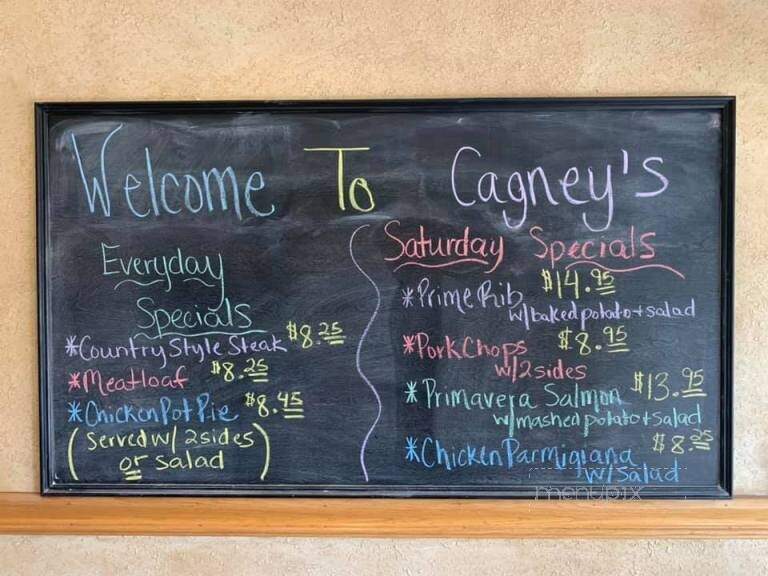 Welcome To Cagney's
Everyday
Specials
*Country Style Steak $8.25
*Meatloaf $8.25
*Chicken Pot Pie $8.45
(Served w/ 2 sides
or salad)
Saturday Specials
*Prime Rib $14.95
w/baked potato + salad
*Pork Chops $8.95
w/2 sides
*Primavera Salmon $13.95
w/mashed potato + salad
*Chicken Parmigiana $8.25
w/Salad
menupix